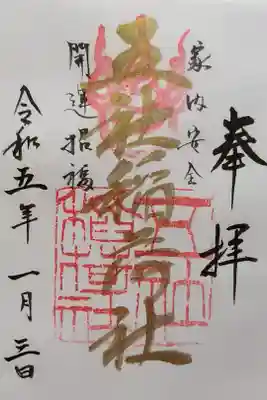 奉拝
家内安全
五社稲荷社
開運招福
令和五年一月三日